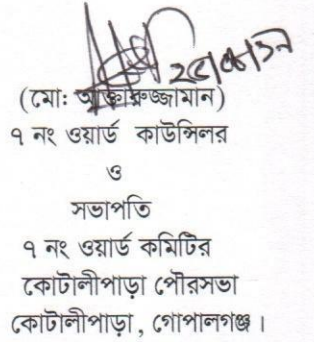 (মো: আক্তারুজ্জামান)
৭ নং ওয়ার্ড কাউন্সিলর
ও
সভাপতি
৭ নং ওয়ার্ড কমিটির
কোটালীপাড়া পৌরসভা
কোটালীপাড়া, গোপালগঞ্জ।